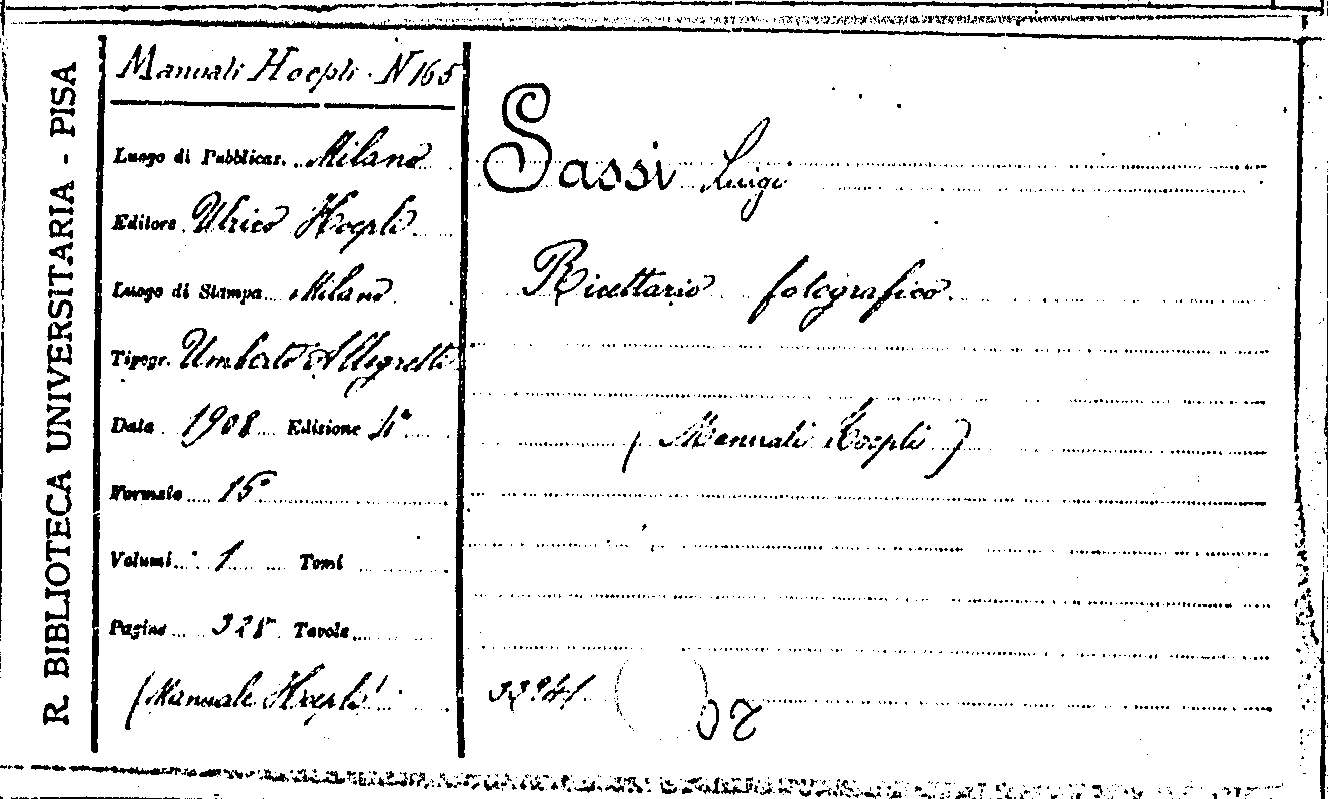 R. BIBLIOTECA UNIVERSITARIA - PISA
Manuali Hoepli. N 165
Luogo di Pubblicaz. Milano
Editore Ulrico Hoepli
Luogo di Stampa Milano
Tipogr. Umberto Allegretti
Data 1908 Edizione 4ª
Formato 15
Volumi 1 Tomi
Pagine 328 Tavole
(Manuale Hoepli)
Sassi Luigi
Ricettario fotografico.
(Manuali Hoepli)